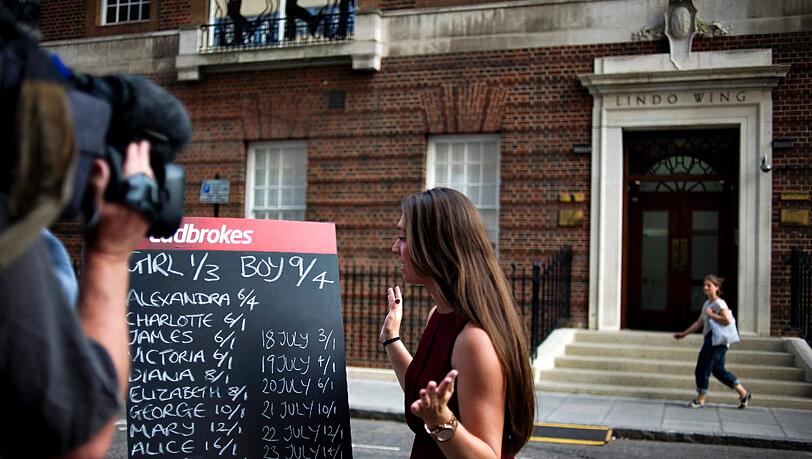 Ladbrokes
GIRL 1/3 BOY 9/4
ALEXANDRA 6/4
CHARLOTTE 6/1
JAMES 6/1
VICTORIA 6/1
DIANA 8/1
ELIZABETH 8/1
GEORGE 10/1
MARY 12/1
ALICE 16/1
18 JULY 3/1
19 JULY 4/1
20 JULY 6/1
21 JULY 10/1
22 JULY 12/1
23 JULY 14/1
LINDO WING